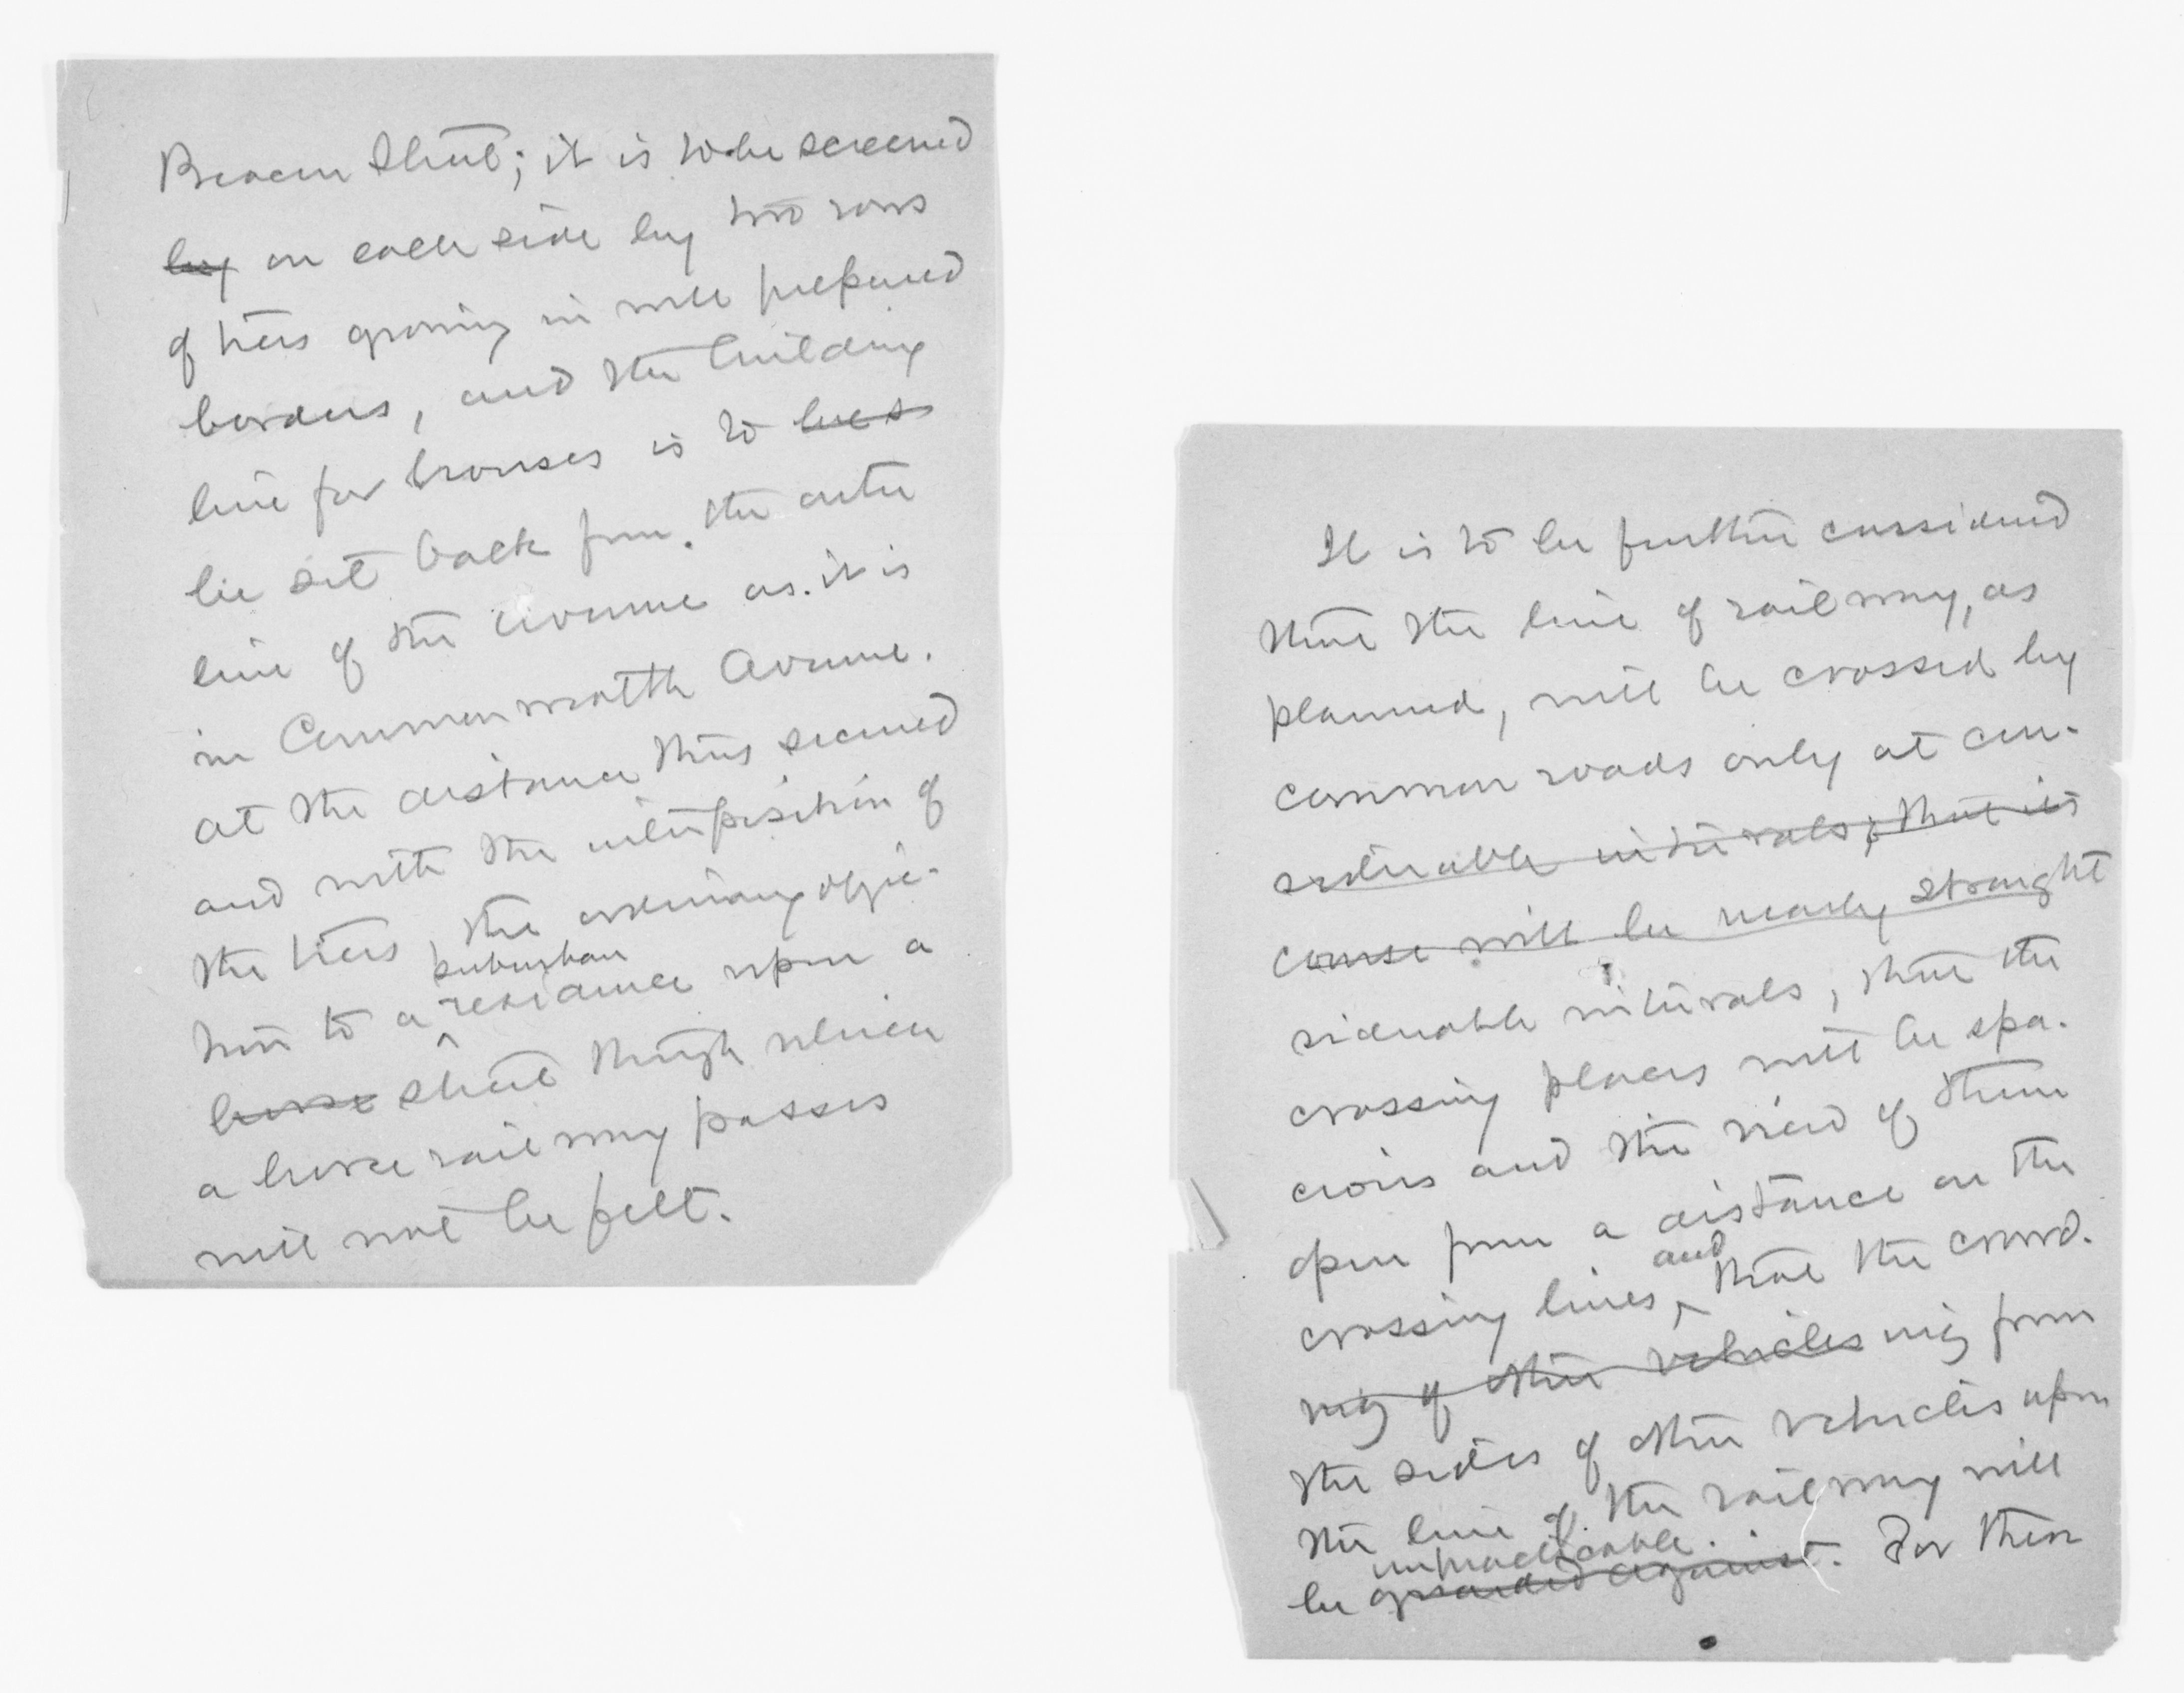 Beacon Street; it is to be screened
by on each side by two rows
of trees growing in well prepared
borders, and the building
line for houses is to be s
be set back from the outer
line of the avenue as it is
in Commonwealth Avenue.
at the distance thus secured
and with the interposition of
the trees, the ordinary objec-
suburban
tion to a residence upon a
horse street through which
a horse railway passes
will not be felt.
It is to be further considered
that the line of railway, as
planned, will be crossed by
common roads only at con-
siderable intervals, that its
course will be nearly straight
siderable intervals, that the
crossing places will be spa-
cious and the view of them
open from a distance on the
and
crossing lines, that the crowd-
ing of other vehicles ing from
the sides of other vehicles upon
the line of the railway will
impracticable.
be guarded against. For these